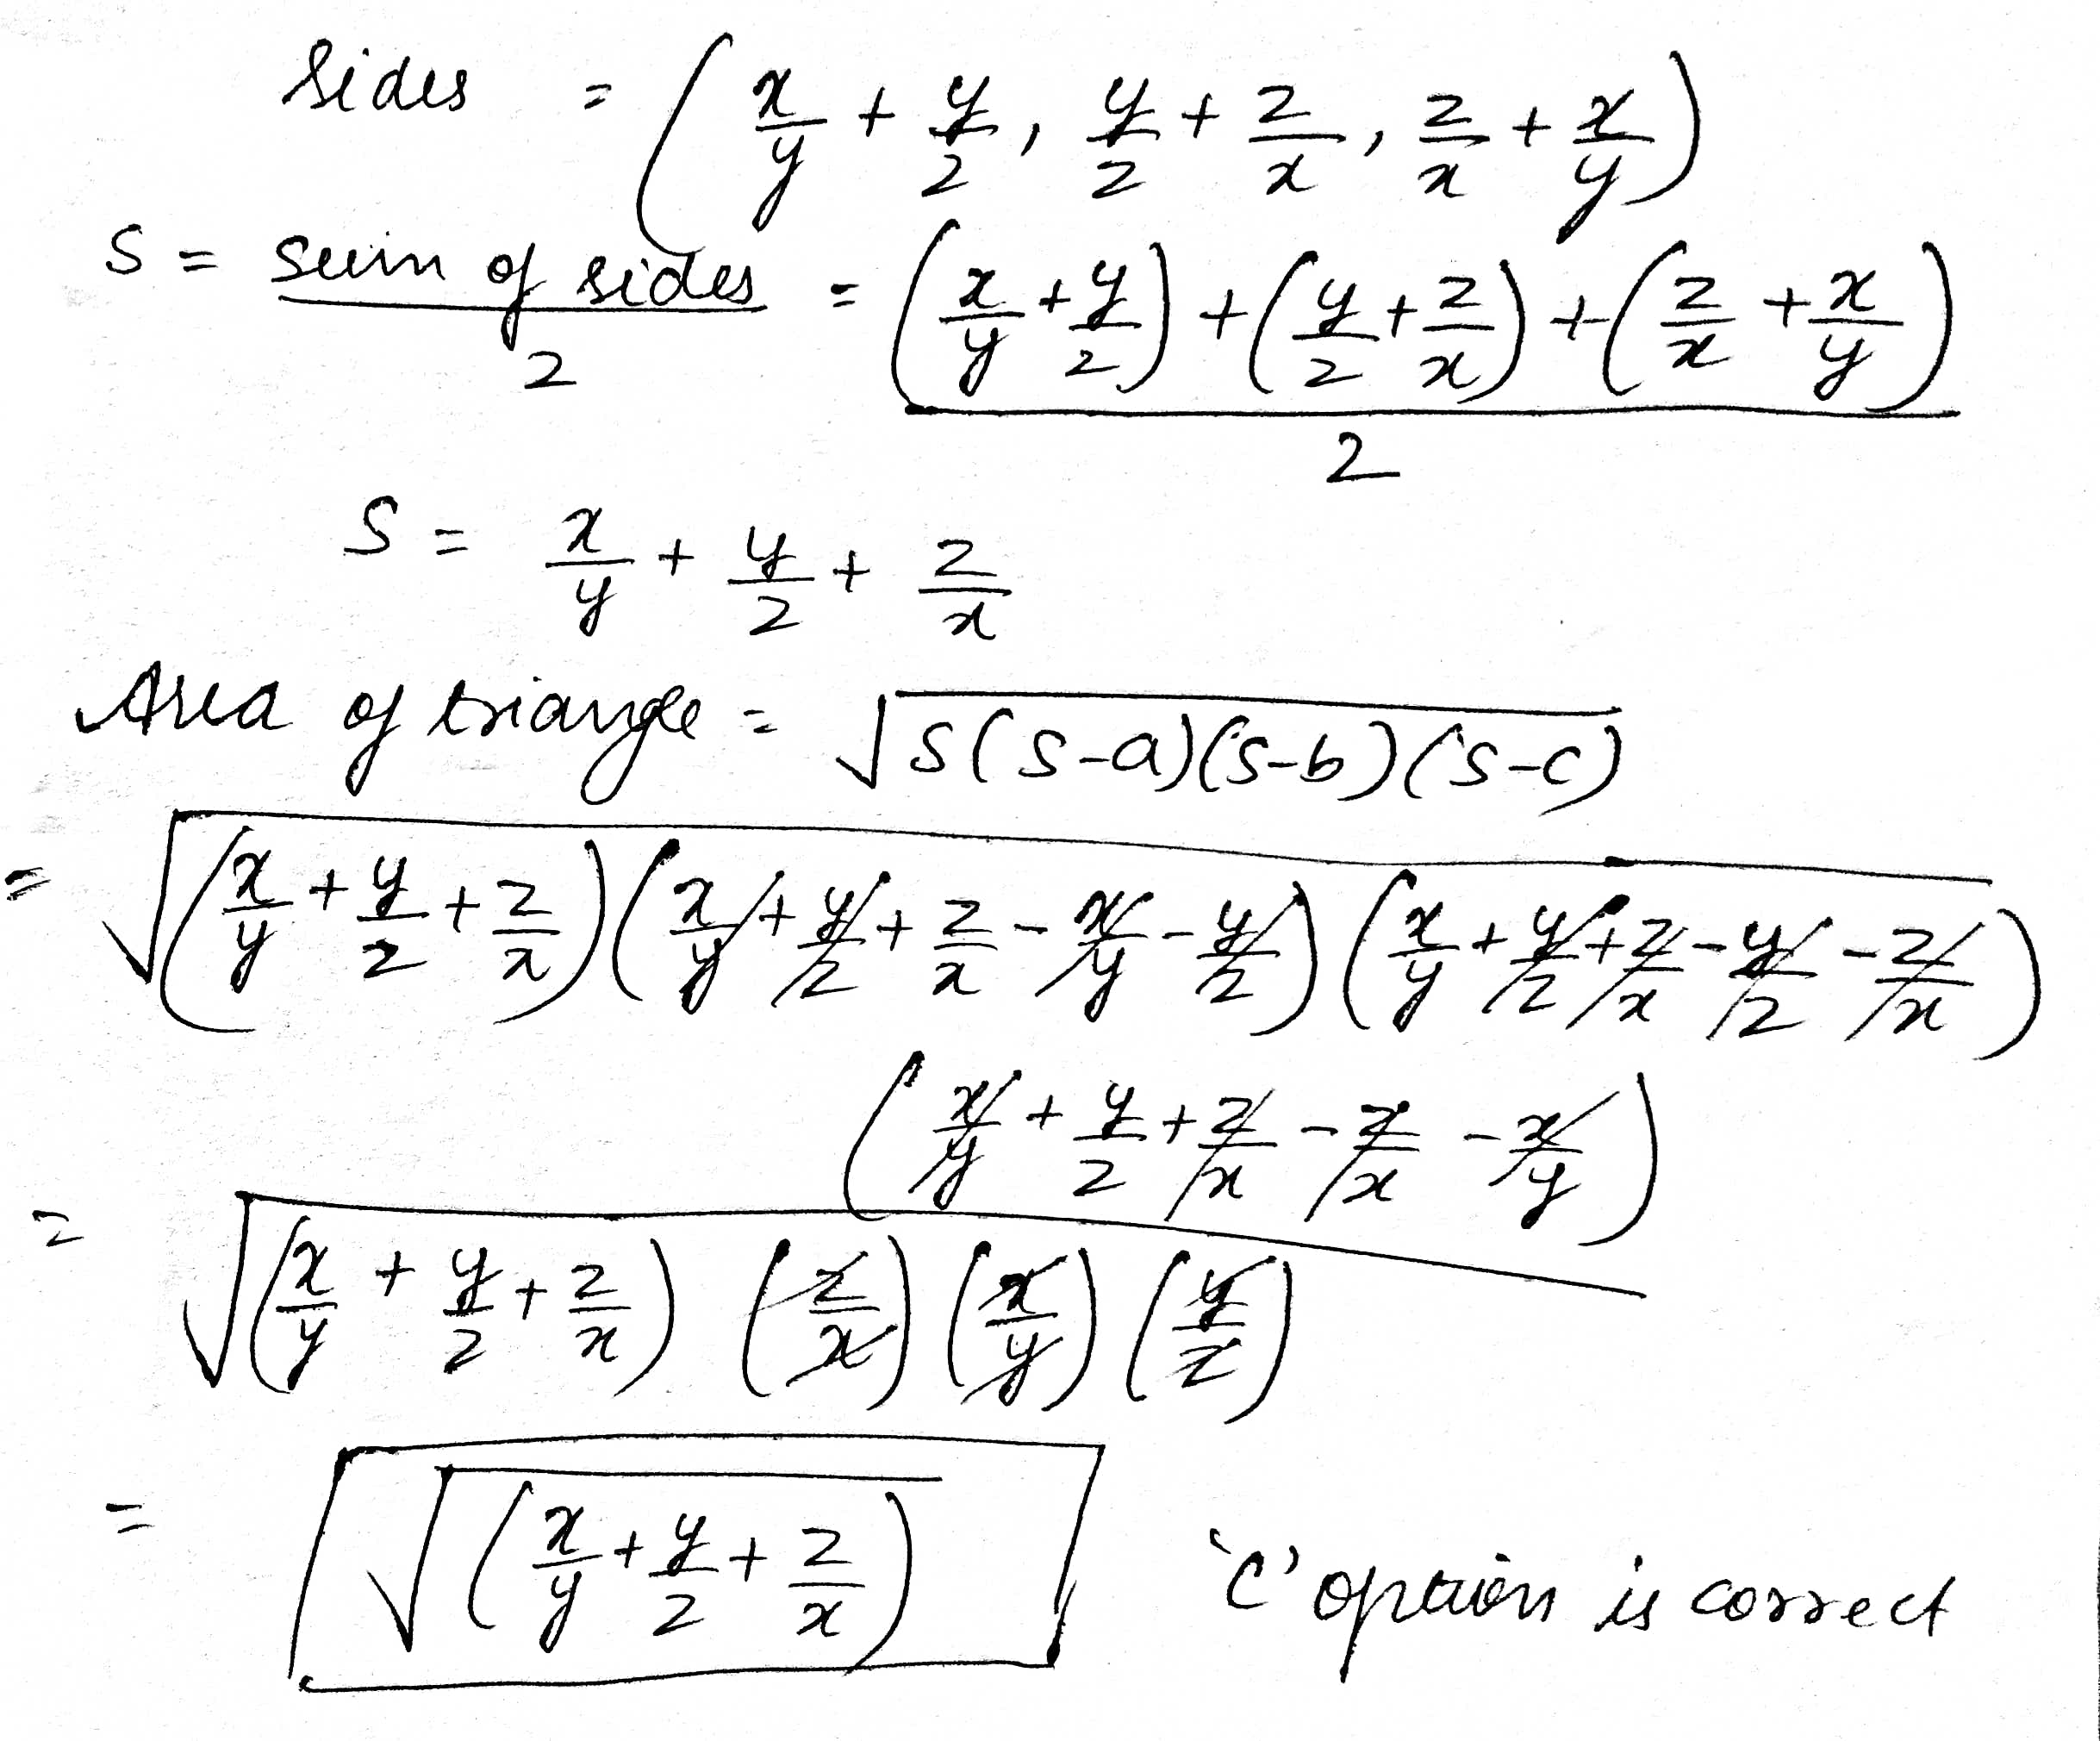 sides = (x/y + y/z, y/z + z/x, z/x + x/y)
S = sum of sides / 2 = ((x/y + y/z) + (y/z + z/x) + (z/x + x/y)) / 2
S = x/y + y/z + z/x
Area of triangle = √(S(S-a)(S-b)(S-c))
= √((x/y + y/z + z/x)(x/y + y/z + z/x - x/y - y/z)(x/y + y/z + z/x - y/z - z/x)
(x/y + y/z + z/x - z/x - x/y)
= √((x/y + y/z + z/x) (z/x) (x/y) (y/z))
= √((x/y + y/z + z/x)) 'C' option is correct